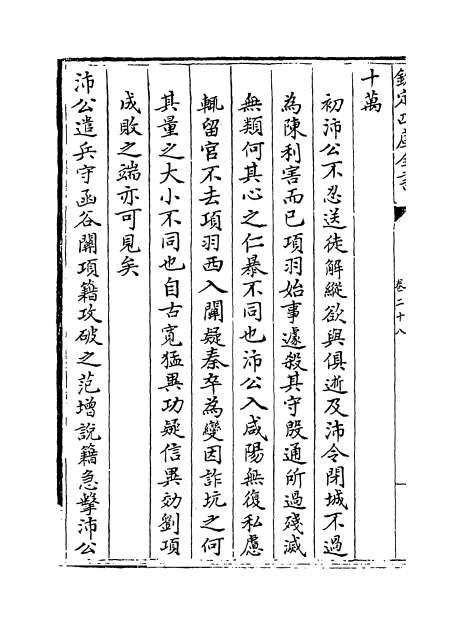 欽定四庫全書
卷二十八
十萬
初沛公不忍送徒解縱欲與俱逝及沛令閉城不過
為陳利害而已項羽始事遽殺其守殷通所過殘滅
無類何其心之仁暴不同也沛公入咸陽無復私慮
輒留官不去項羽西入關疑秦卒為變因詐坑之何
其量之大小不同也自古寛猛異功疑信異効劉項
成敗之端亦可見矣
沛公遣兵守函谷關項籍攻破之范增說籍急擊沛公